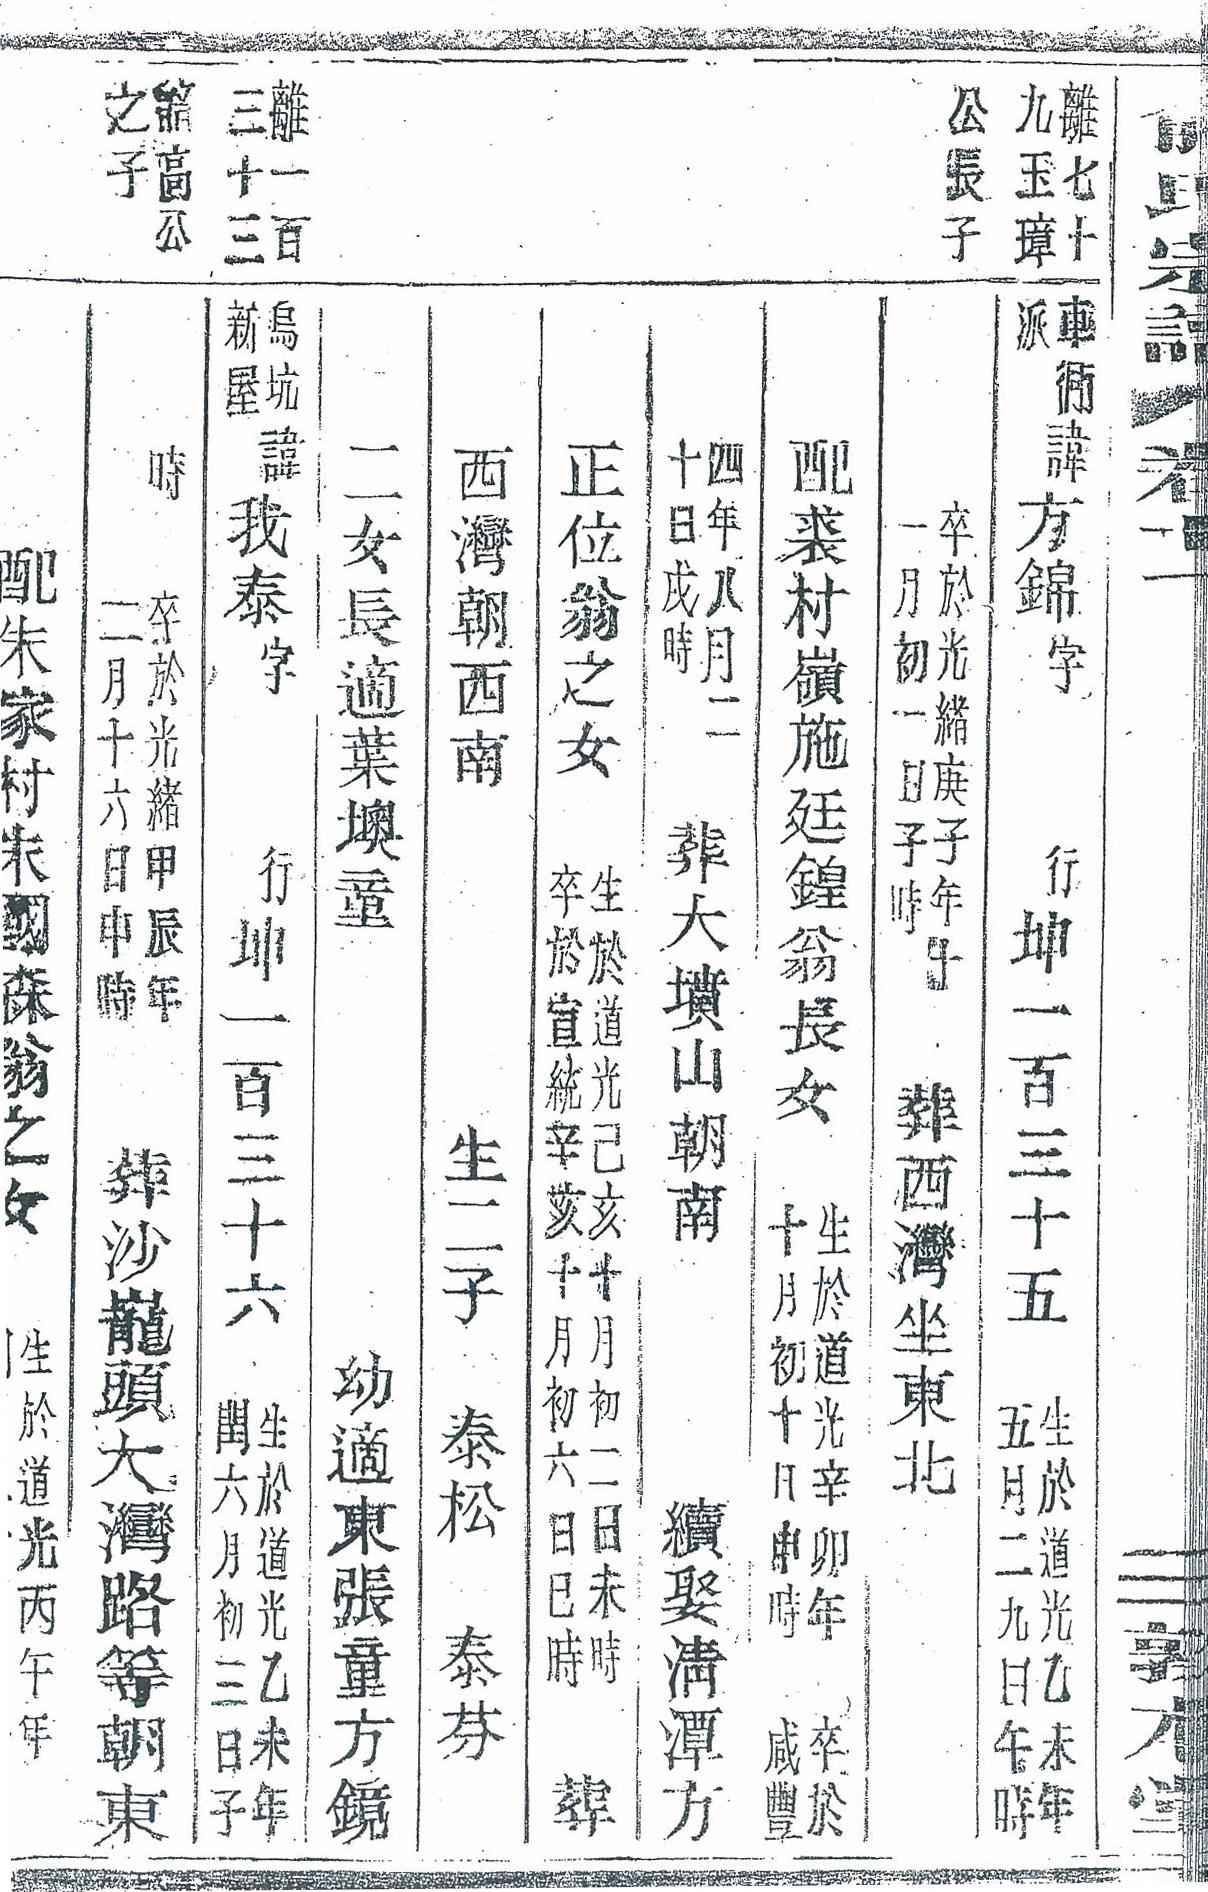 氏宗譜 卷十一
敦本堂
離七十
九玉璋
公長子
車衕
派
諱方錦字 行坤一百三十五 生於道光乙未年
五月二九日午時
卒於光緒庚子年十
一月初一日子時 葬西灣坐東北
配裘村嶺施廷鍠翁長女 生於道光辛卯年
十月初十日申時 卒於
咸豐
四年八月二
十日戌時 葬大墳山朝南 續娶淸潭方
正位翁之女 生於道光己亥十月初二日未時
卒於宣統辛亥十月初六日巳時 葬
西灣朝西南 生二子 泰松 泰芬
二女長適葉墺童 幼適東張童方鏡
離一百
三十三
高公
之子
烏坑
新屋
諱我泰字 行坤一百三十六 生於道光乙未年
閏六月初三日子
時 卒於光緒甲辰年
二月十六日申時 葬沙巃頭大灣路等朝東
配朱家村朱國森翁之女 生於道光丙午年